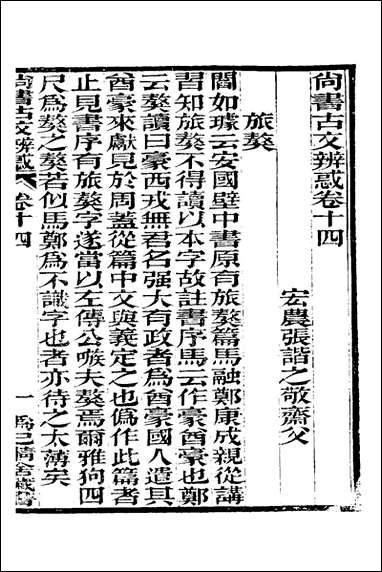 尚書古文辨惑卷十四
宏農張諧之敬齋父
旅獒
閻如璩云安國壁中書原有旅獒篇馬融鄭康成親從講
習知旅獒不得讀以本字故註書序馬云作豪酋豪也鄭
云獒讀曰豪西戎無君名强大有政者為酋豪國人遣其
酋豪來獻見於周蓋從篇中文與義定之也偽作此篇者
止見書序有旅獒字遂當以左傳公嗾夫獒焉爾雅狗四
尺為獒之獒若似馬鄭為不識字也者亦待之太薄矣
尚書古文辨惑 卷十四
一 為己精舍藏書